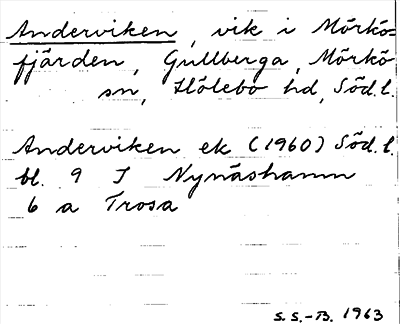 Anderviken, vik i Mörkö=
fjärden, Gullberga, Mörkö
sn, Hölebo hd, Söd.l.
Anderviken ek (1960) Söd.l.
bl. 9 I Nynäshamn
6 a Trosa
S. S.-B. 1963